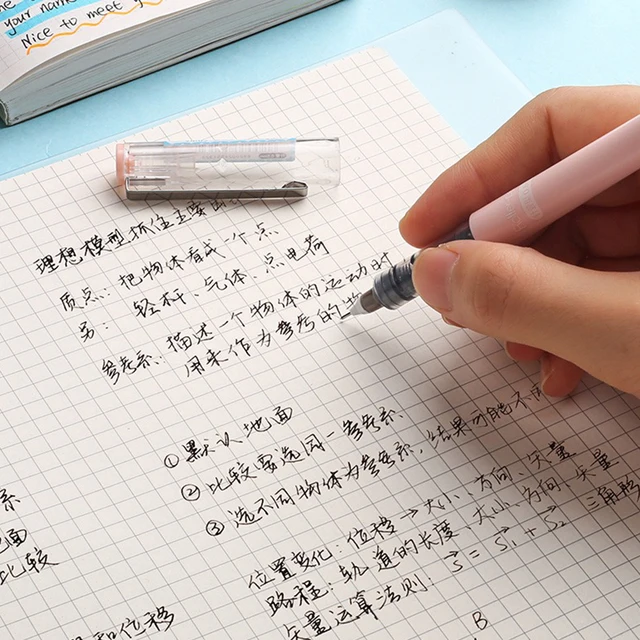 your name
Nice to meet y
理想模型抓住主要
质点：把物体看成一个点
另：轻杆、气体、点电荷
参考系：描述一个物体的运动时
用来作为参考的物
① 默认地面
② 比较要选同一参考系.
③ 选不同物体为参考系，结果可能不同
系
地面
比较
和位移
位置变化：位移 → 大小、方向、矢量
路程：轨道的长度、大小、方向、矢量
矢量运算法则：S = S₁ + S₂ 三角形
B